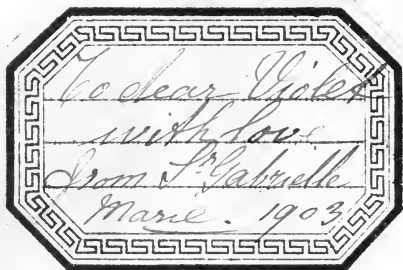 To dear Violet
with love
from Sr. Gabrielle
Marie. 1903